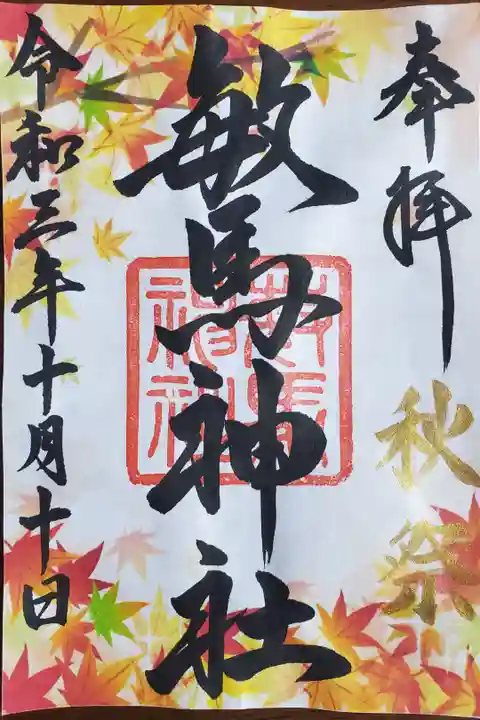 奉拝
秋祭
敏馬神社
敏馬神社
令和三年十月十日